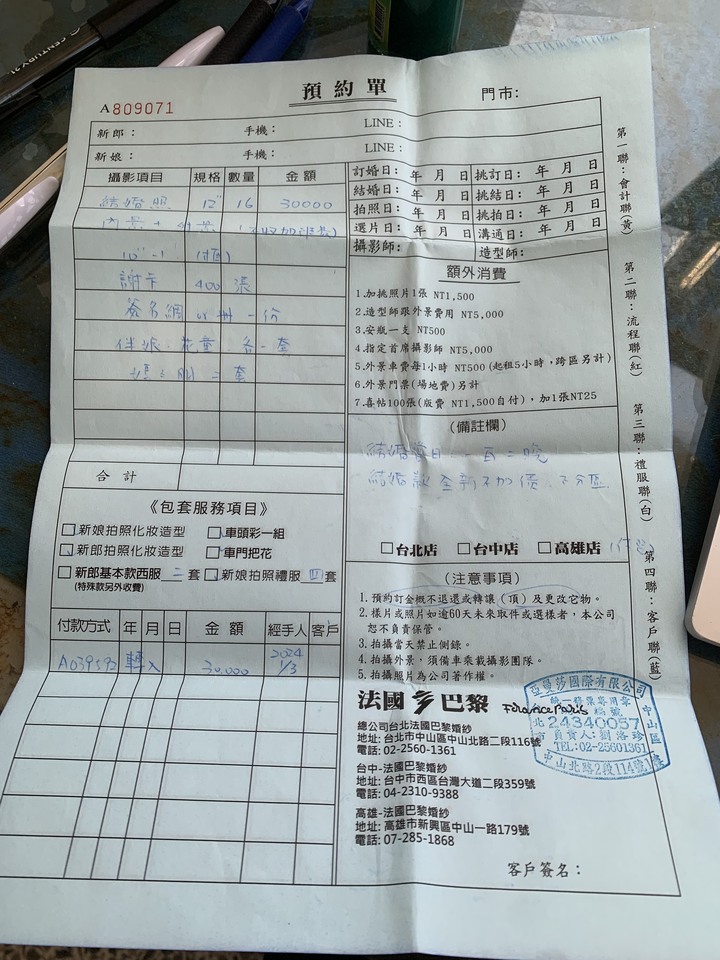 CENTURY 21
預約單
門市:
A809071
新郎: 手機: LINE:
新娘: 手機: LINE:
攝影項目 規格 數量 金額
結婚照 12" 16 30000
內景+外景
10"-1
謝卡 400 張
簽名綢 or 冊 一份
伴娘、花童、各一套
媽媽服 二套
合計
訂婚日: 年 月 日 挑訂日: 年 月 日
結婚日: 年 月 日 挑結日: 年 月 日
拍照日: 年 月 日 挑拍日: 年 月 日
選片日: 年 月 日 溝通日: 年 月 日
攝影師: 造型師:
額外消費
1.加挑照片1張 NT1,500
2.造型師跟外景費用 NT5,000
3.安瓶一支 NT500
4.指定首席攝影師 NT5,000
5.外景車費每1小時 NT500 (起租5小時,跨區另計)
6.外景門票(場地費)另計
7.喜帖100張(版費 NT1,500自付),加1張NT25
(備註欄)
結婚當日
結婚款全新不加價、不分區
□台北店 □台中店 □高雄店
《包套服務項目》
□新娘拍照化妝造型 □車頭彩一組
□新郎拍照化妝造型 □車門把花
□新郎基本款西服 二 套 □新娘拍照禮服 四 套
(特殊款另外收費)
付款方式 年 月 日 金額 經手人 客戶
A039592 轉入 30,000 2024 1/3
(注意事項)
1. 預約訂金概不退還或轉讓(頂)及更改它物。
2. 樣片或照片如逾60天未來取件或選樣者,本公司
恕不負責保管。
3. 拍攝當天禁止側錄。
4. 拍攝外景,須備車乘載攝影團隊。
5. 拍攝照片為公司著作權。
法國巴黎 France Paris
總公司台北法國巴黎婚紗
地址: 台北市中山區中山北路二段116號
電話: 02-2560-1361
台中-法國巴黎婚紗
地址: 台中市西區台灣大道二段359號
電話: 04-2310-9388
高雄-法國巴黎婚紗
地址: 高雄市新興區中山一路179號
電話: 07-285-1868
亞曼莎國際有限公司
統一發票專用章
編號
24340057
負責人:劉洛珍
TEL:02-25601361
北市中山區中山北路2段114號1樓
客戶簽名:
第一聯:會計聯(黃)
第二聯:流程聯(紅)
第三聯:禮服聯(白)
第四聯:客戶聯(藍)